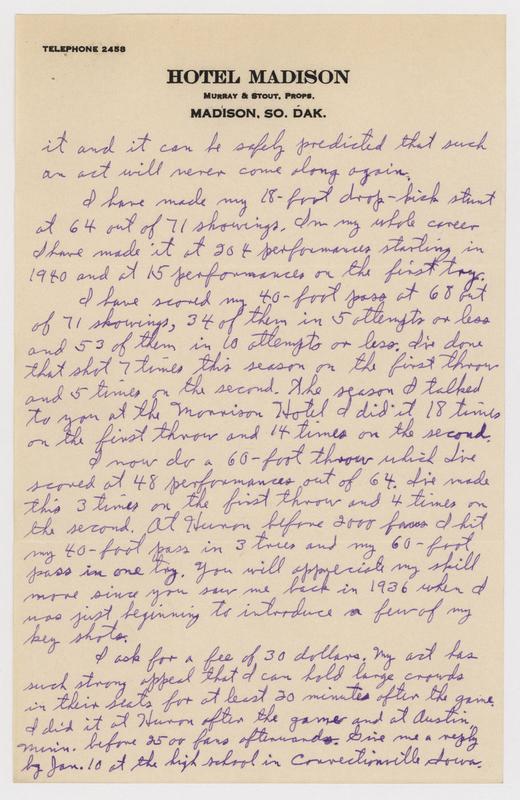 TELEPHONE 2458
HOTEL MADISON
MURRAY & STOUT, PROPS.
MADISON, SO. DAK.
it and it can be safely predicted that such
an act will never come along again.
I have made my 18-foot drop-kick stunt
at 64 out of 71 showings. In my whole career
I have made it at 204 performances starting in
1940 and at 15 performances on the first try.
I have scored my 40-foot pass at 68 out
of 71 showings, 34 of them in 5 attempts or less
and 53 of them in 10 attempts or less. I've done
that shot 7 times this season on the first throw
and 5 times on the second. The season I talked
to you at the Morrison Hotel I did it 18 times
on the first throw and 14 times on the second.
I now do a 60-foot throw which I've
scored at 48 performances out of 64. I've made
this 3 times on the first throw and 4 times on
the second. At Huron before 2000 fans I hit
my 40-foot pass in 3 tries and my 60-foot
pass in one try. You will appreciate my skill
more since you saw me back in 1936 when I
was just beginning to introduce a few of my
key shots.
I ask for a fee of 30 dollars. My act has
such strong appeal that I can hold large crowds
in their seats for at least 20 minutes after the game.
I did it at Huron after the game and at Austin,
Minn. before 2500 fans afterwards. Give me a reply
by Jan. 10 at the high school in Correctionville Iowa.